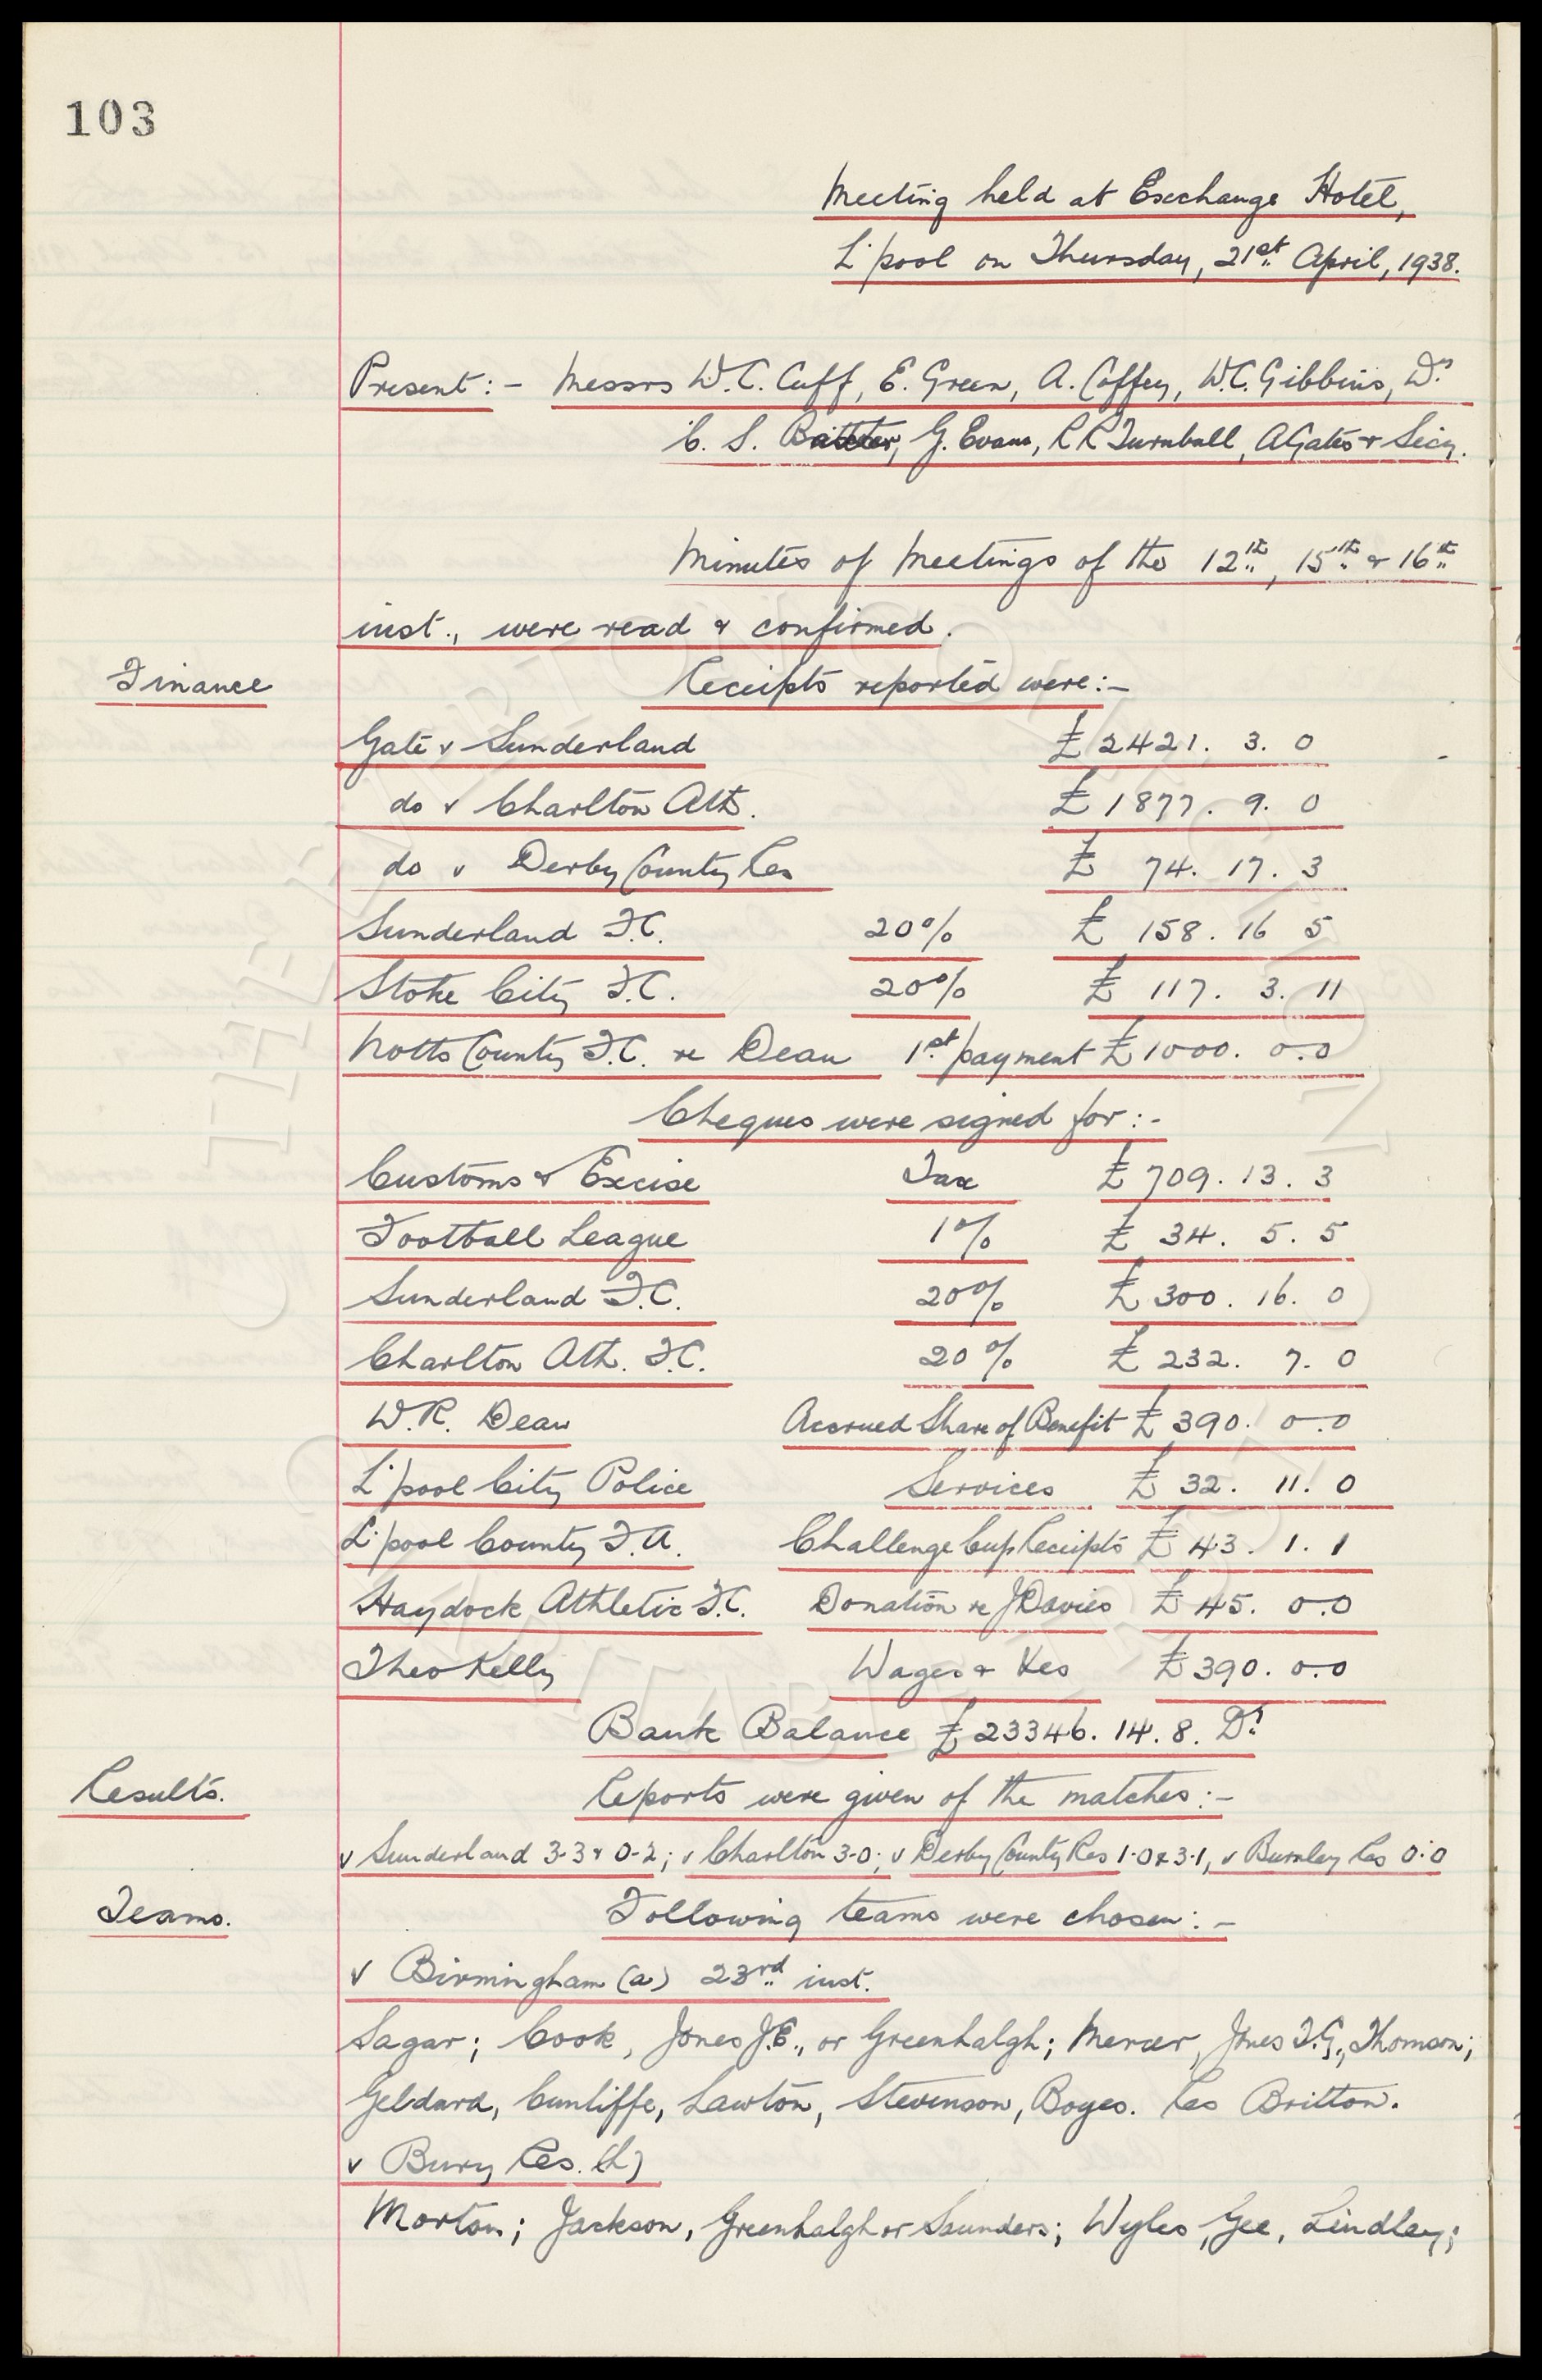 103
Meeting held at Exchange Hotel,
L'pool on Thursday, 21st April, 1938.
Present:- Messrs W.C. Cuff, E. Green, A. Coffey, W.C. Gibbins, Dr
C. S. Baxter, G. Evans, R R Turnbull, A Gates & Secy.
Minutes of Meetings of the 12th, 15th & 16th
inst., were read & confirmed.
Finance Receipts reported were:-
Gate v Sunderland £2421. 3. 0
do v Charlton Ath. £1877. 9. 0
do v Derby County Res £ 74. 17. 3
Sunderland F.C. 20% £ 158. 16 5
Stoke City F.C. 20% £ 117. 3. 11
Notts County F.C. re Dean 1st payment £1000. 0.0
Cheques were signed for:-
Customs & Excise Tax £709. 13. 3
Football League 1% £ 34. 5. 5
Sunderland F.C. 20% £300. 16. 0
Charlton Ath. F.C. 20% £232. 7. 0
W.R. Dean Accrued Share of Benefit £390. 0.0
L'pool City Police Services £ 32. 11. 0
L'pool County F.A. Challenge Cup Receipts £ 43. 1. 1
Haydock Athletic F.C. Donation re J Davies £ 45. 0.0
Theo Kelly Wages & Xes £390. 0.0
Bank Balance £23346. 14. 8. Dr
Results. Reports were given of the matches:-
v Sunderland 3-3 & 0-2; v Charlton 3-0; v Derby County Res 1-0 & 3-1, v Burnley Res 0-0
Teams. Following teams were chosen:-
v Birmingham (a) 23rd inst.
Sagar; Cook, Jones J.E., or Greenhalgh; Mercer, Jones T.G., Thomson;
Geldard, Cunliffe, Lawton, Stevenson, Boyes. Res Britton.
v Bury Res. (h)
Morton; Jackson, Greenhalgh or Saunders; Wyles, Gee, Lindley;